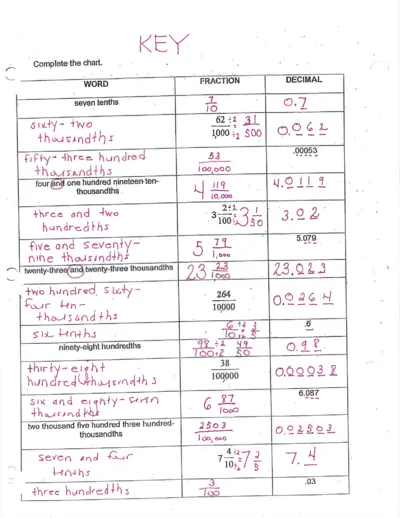 KEY
Complete the chart.
WORD FRACTION DECIMAL
seven tenths 7/10 0.7
sixty-two thousandths 62/1,000 ÷2 ÷2 31/500 0.062
fifty-three hundred thousandths 53/100,000 .00053
four and one hundred nineteen ten-thousandths 4 119/10,000 4.0119
three and two hundredths 3 2/100 ÷2 ÷2 3 1/50 3.02
five and seventy-nine thousandths 5 79/1,000 5.079
twenty-three and twenty-three thousandths 23 23/1000 23.023
two hundred sixty-four ten-thousandths 264/10000 0.0264
six tenths 6/10 ÷2 ÷2 3/5 .6
ninety-eight hundredths 98/100 ÷2 ÷2 49/50 0.98
thirty-eight hundred thousandths 38/100000 0.00038
six and eighty-seven thousandths 6 87/1000 6.087
two thousand five hundred three hundred-thousandths 2503/100,000 0.02503
seven and four tenths 7 4/10 ÷2 ÷2 7 2/5 7.4
three hundredths 3/100 .03